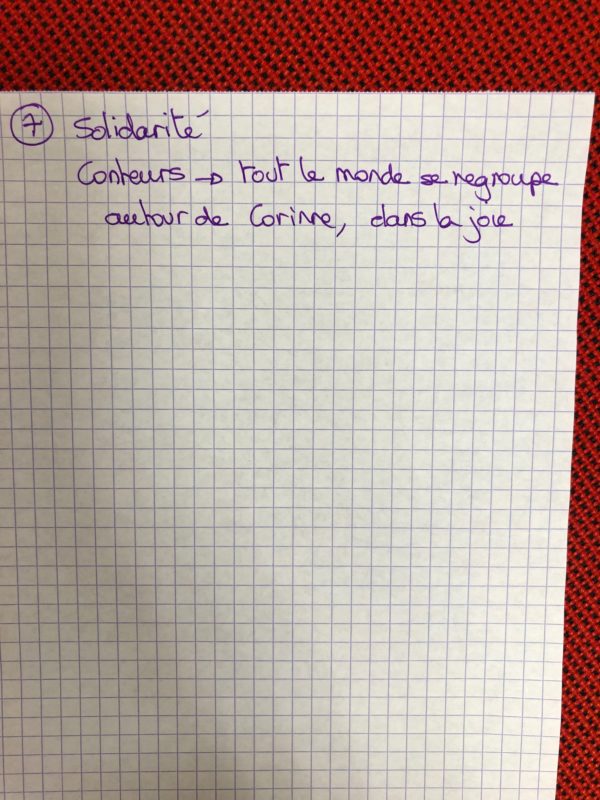 7 Solidarité
Conteurs → tout le monde se regroupe
autour de Corinne, dans la joie